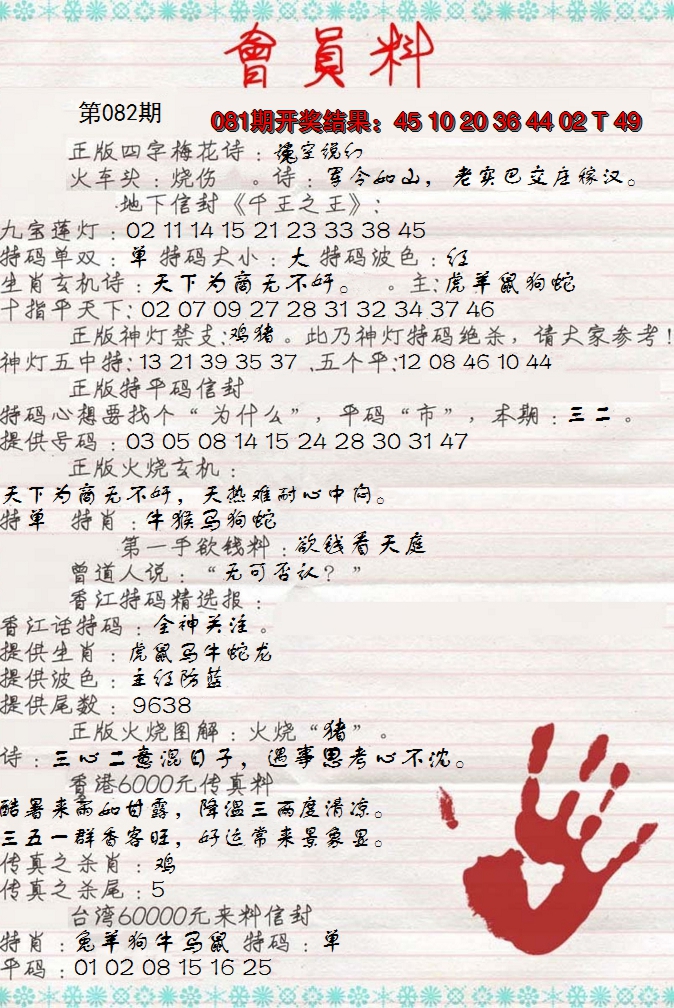 會員料
第082期
081期开奖结果：45 10 20 36 44 02 T 49
正版四字梅花诗：镜空说幻
火车头：烧伤 。诗：军令如山，老实巴交庄稼汉。
地下信封《千王之王》：
九宝莲灯：02 11 14 15 21 23 33 38 45
特码单双：单 特码大小：大 特码波色：红
生肖玄机诗：天下为商无不奸。 。主：虎羊鼠狗蛇
十指平天下：02 07 09 27 28 31 32 34 37 46
正版神灯禁支：鸡猪。此乃神灯特码绝杀，请大家参考！
神灯五中特：13 21 39 35 37 、五个平：12 08 46 10 44
正版特平码信封
特码心想要找个“为什么”，平码“市”，本期：三二。
提供号码：03 05 08 14 15 24 28 30 31 47
正版火烧玄机：
天下为商无不奸，天热难耐心中闷。
特单 特肖：牛猴马狗蛇
第一手欲钱料：欲钱看天庭
曾道人说：“无可否认？”
香江特码精选报：
香江话特码：全神关注。
提供生肖：虎鼠马牛蛇龙
提供波色：主红防蓝
提供尾数：9638
正版火烧图解：火烧“猪”。
诗：三心二意混日子，遇事思考心不沈。
香港6000元传真料
酷暑来雨如甘露，降温三两度清凉。
三五一群香客旺，好运常来景象显。
传真之杀肖：鸡
传真之杀尾：5
台湾60000元来料信封
特肖：兔羊狗牛马鼠 特码：单
平码：01 02 08 15 16 25